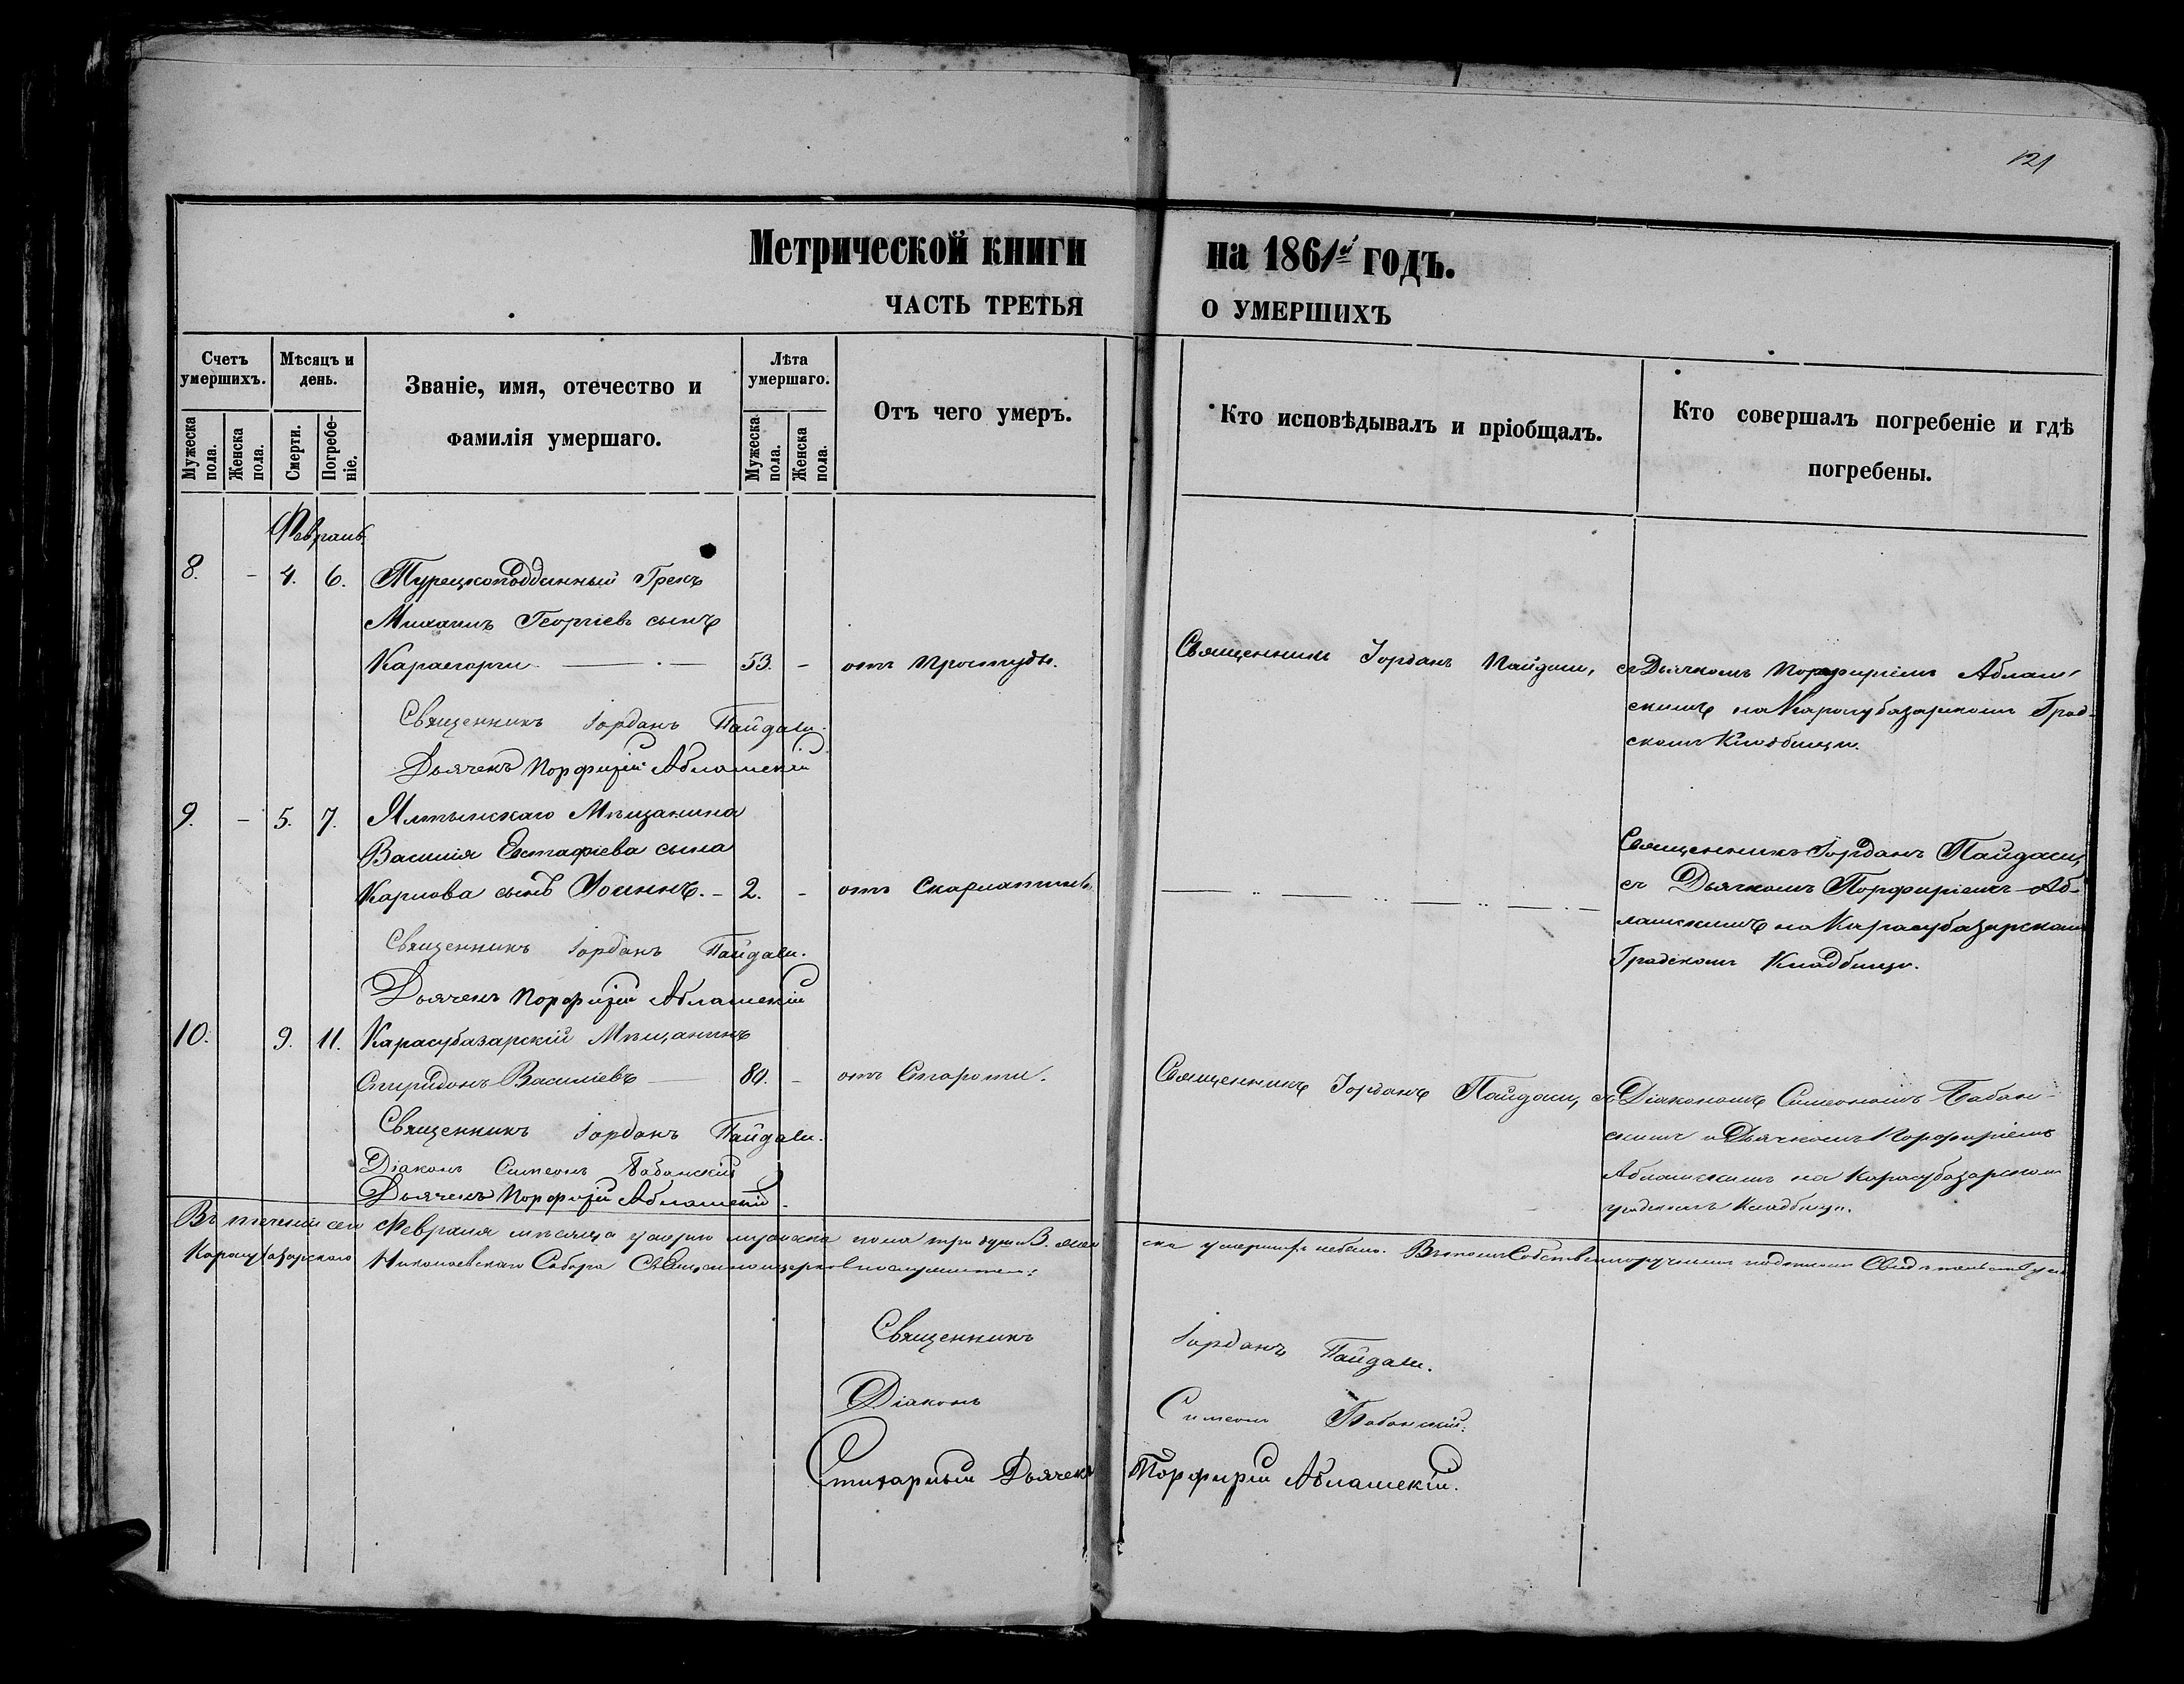 121
Метрической книги на 1861й годъ.
ЧАСТЬ ТРЕТЬЯ О УМЕРШИХЪ
Счетъ умершихъ.
Мѣсяцъ и день.
Званіе, имя, отечество и фамилія умершаго.
Лѣта умершаго.
Отъ чего умеръ.
Кто исповѣдывалъ и пріобщалъ.
Кто совершалъ погребеніе и гдѣ погребены.
Мужеска пола.
Женска пола.
Смерти.
Погребеніе.
Мужеска пола.
Женска пола.
Февраль.
8. - 4. 6. Турецкоподданный Грекъ
Михаилъ Георгіевъ сынъ
Караегорги 53. - отъ простуды. Священникъ Іорданъ Пайдаси, съ Дьячкомъ Порфиріемъ Аблаш-
скимъ на Карасубазарскомъ Град-
скомъ Кладбищѣ.
Священникъ Іорданъ Пайдаси.
Дьячекъ Порфирій Аблашскій
9. - 5. 7. Ялтынскаго Мѣщанина
Василія Евстафіева сына
Карпова сынъ Іоаннъ. - 2. - отъ Скарлатины.
Священникъ Іорданъ Пайдаси,
съ Дьячкомъ Порфиріемъ Аб-
лашскимъ на Карасубазарскомъ
Градскомъ Кладбищѣ.
Священникъ Іорданъ Пайдаси.
Дьячекъ Порфирій Аблашскій
10. 9. 11. Карасубазарскій Мѣщанинъ
Спиридонъ Василіевъ 80. - отъ Старости. Священникъ Іорданъ Пайдаси, съ Діакономъ Симеономъ Бабан-
скимъ и Дьячкомъ Порфиріемъ
Аблашскимъ на Карасубазарскомъ
градскомъ Кладбищѣ.
Священникъ Іорданъ Пайдаси.
Діаконъ Симеонъ Бабанскій
Дьячекъ Порфирій Аблашскій.
Въ теченіи сего Февраля мѣсяца умерло мужеска пола три души 3. жен
ска умершихъ небыло. Въ томъ Собственноручнымъ подписомъ
Карасубазарскаго Николаевскаго Собора Священноцерковнослужители:
Священникъ Іорданъ Пайдаси.
Діаконъ Симеонъ Бабанскій.
Стихарный Дьячекъ Порфирій Аблашскій.